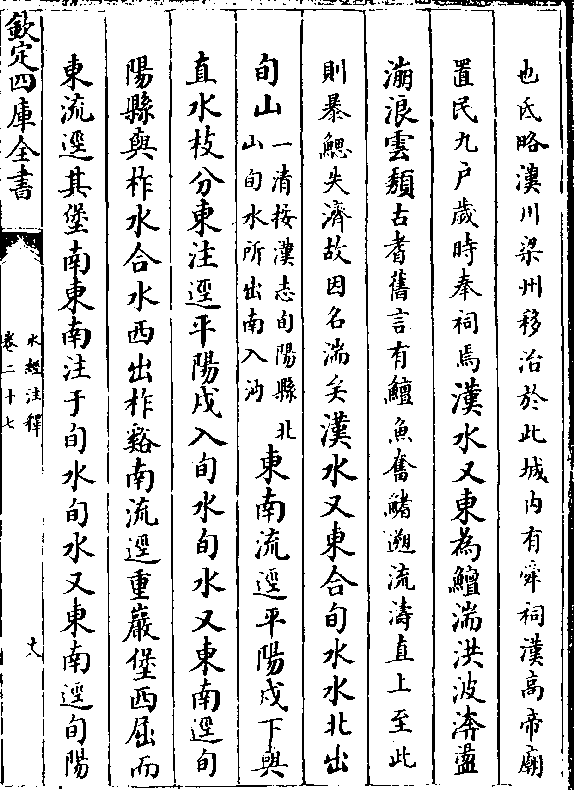 也氐略漢川梁州移治於此城内有舜祠漢高帝廟
置民九戸歲時奉祠焉漢水又東為鱣湍洪波渀盪
漰浪雲頽古耆舊言有鱣魚奮鰭遡流濤直上至此
則暴鰓失濟故因名湍矣漢水又東合旬水水北出
旬山一清按漢志旬陽縣北
山旬水所出南入沔東南流逕平陽戍下與
直水枝分東注逕平陽戍入旬水旬水又東南逕旬
陽縣與柞水合水西出柞谿南流逕重巖堡西屈而
東流逕其堡南東南注于旬水旬水又東南逕旬陽
欽定四庫全書
水經注釋
卷二十七